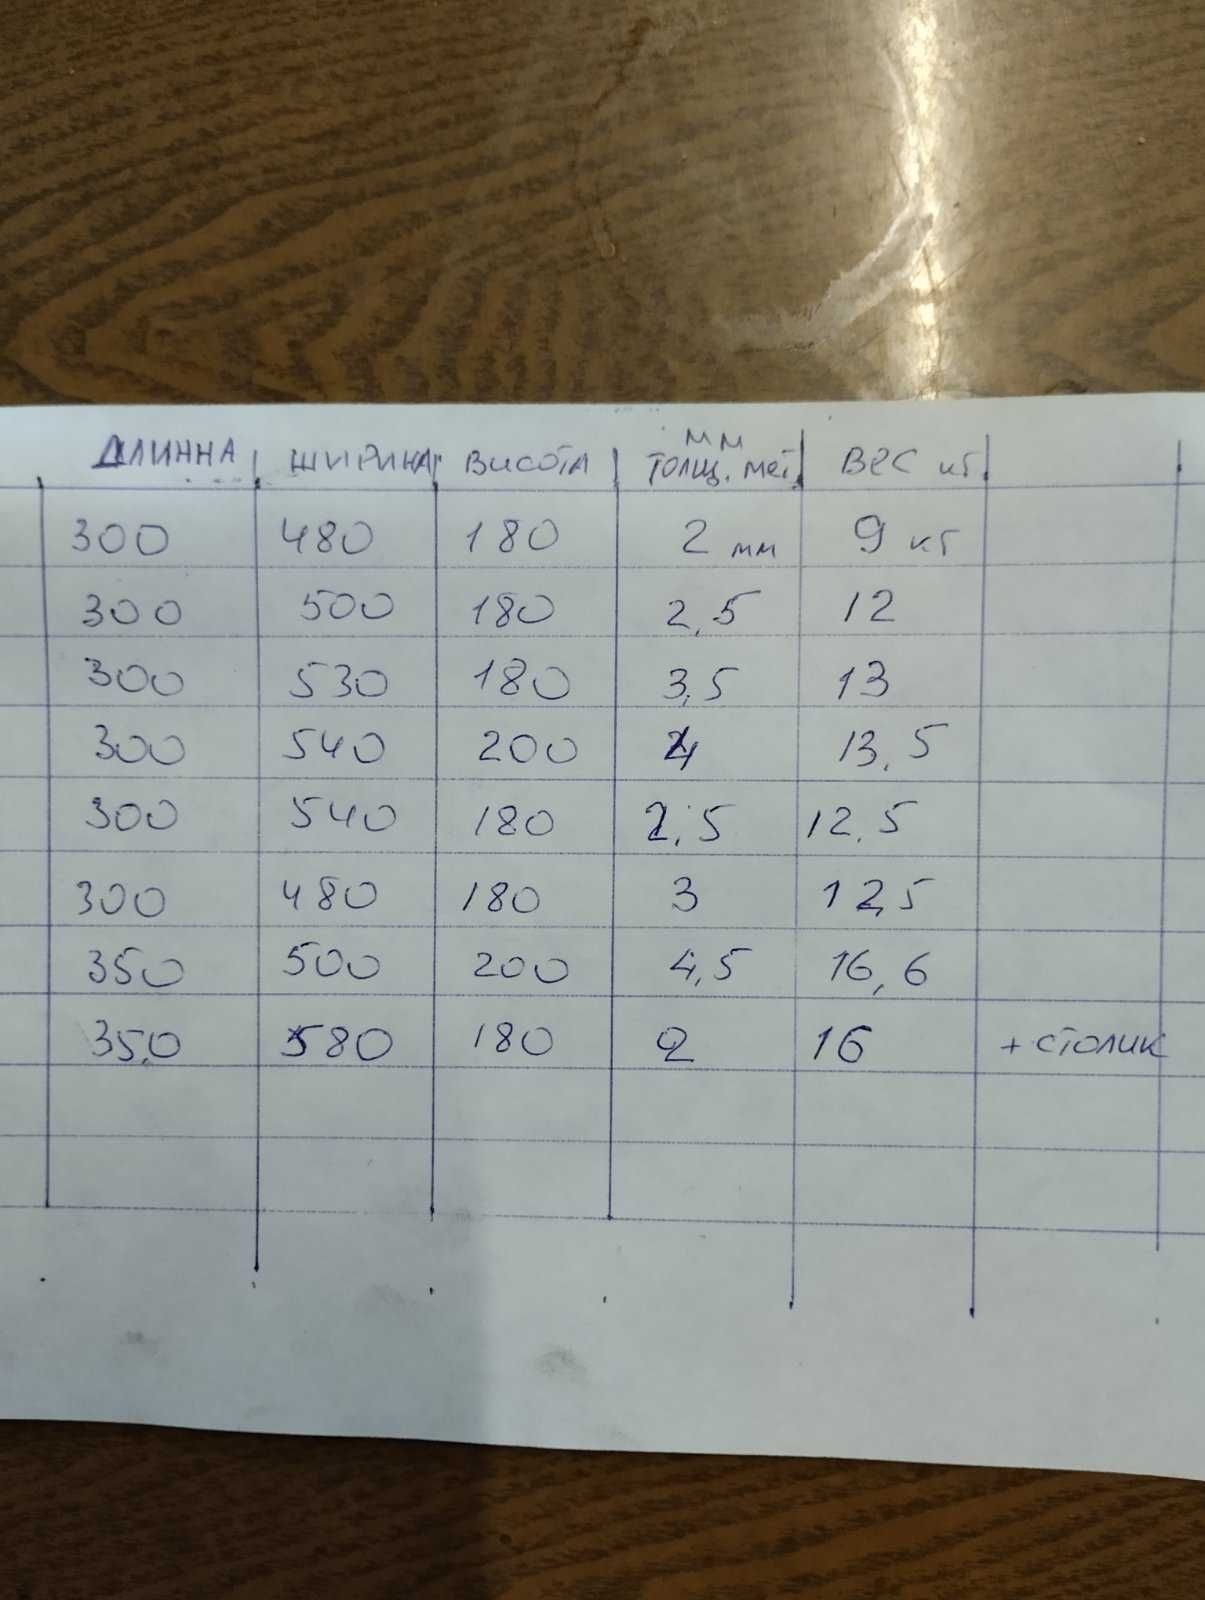 ДЛИННА ШИРИНА ВИСОТА мм ТОЛЩ. МЕТ ВЕС кг
300 480 180 2 мм 9 кг
300 500 180 2,5 12
300 530 180 3,5 13
300 540 200 4 13,5
300 540 180 2,5 12,5
300 480 180 3 12,5
350 500 200 4,5 16,6
350 580 180 2 16 + СТОЛИК